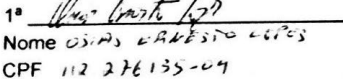 1ª
Nome OSIAS ERNESTO LOPES
CPF 112 276135-04